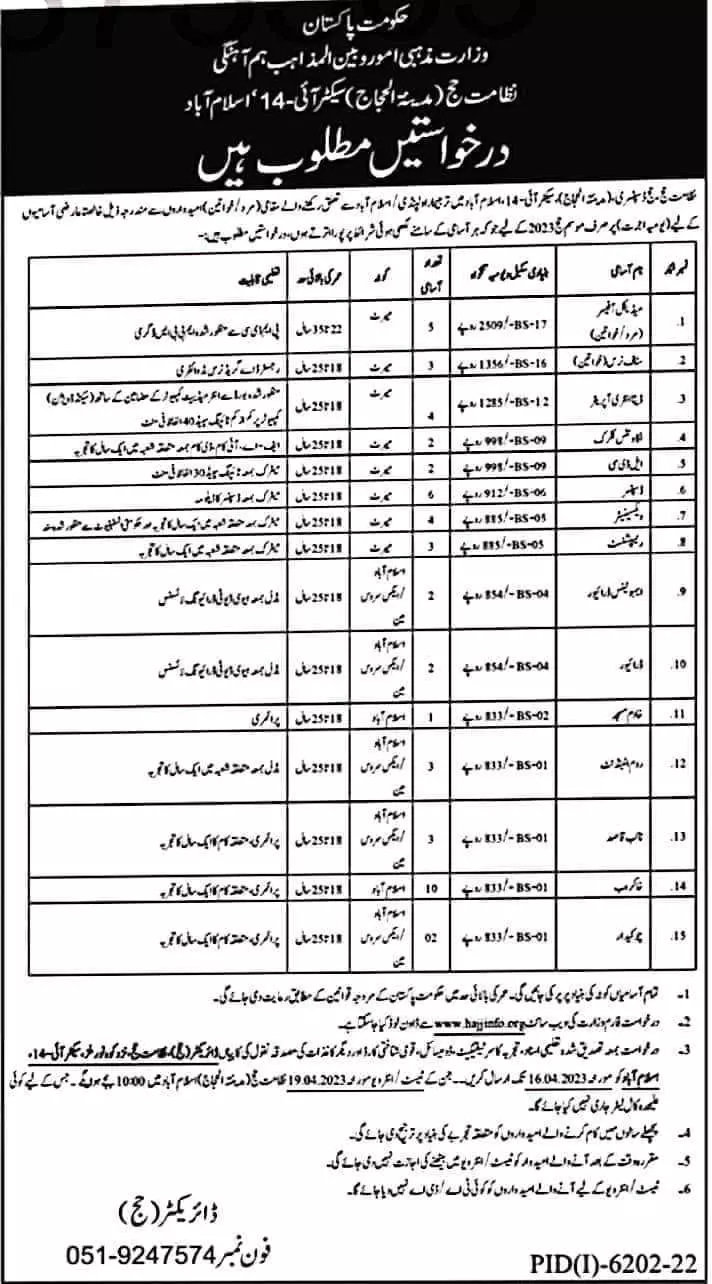 حکومت پاکستان
وزارت مذہبی امور و بین المذاہب ہم آہنگی
نظامت حج (مدینۃ الحجاج) سیکٹر آئی-14، اسلام آباد
درخواستیں مطلوب ہیں
نظامت حج، حج ڈسپنسری، (مدینۃ الحجاج)، سیکٹر آئی-14، اسلام آباد میں ترجیحاً راولپنڈی/اسلام آباد سے تعلق رکھنے والے مقامی (مرد/خواتین) امیدواروں سے مندرجہ ذیل خالصتاً عارضی آسامیوں
کے لیے (یومیہ اجرت) پر صرف موسم حج 2023 کے لیے جو کہ ہر آسامی کے سامنے لکھی ہوئی شرائط پر پورا اترتے ہوں، درخواستیں مطلوب ہیں:-
نمبر شمار نام آسامی بنیادی سکیل و یومیہ تنخواہ تعداد آسامی کوٹہ عمر کی بالائی حد تعلیمی قابلیت
1. میڈیکل آفیسر (مرد/خواتین) BS-17-/2509 روپے 5 میرٹ 22 تا 35 سال پی ایم ڈی سی سے منظور شدہ ایم بی بی ایس ڈگری
2. سٹاف نرس (خواتین) BS-16-/1356 روپے 3 میرٹ 18 تا 25 سال رجسٹرڈ اے گریڈ نرس مڈوائفری
3. ڈیٹا انٹری آپریٹر BS-12-/1285 روپے 4 میرٹ 18 تا 25 سال منظور شدہ بورڈ سے انٹرمیڈیٹ کمپیوٹر کے مضامین کے ساتھ (سیکنڈ ڈویژن)
کمپیوٹر پر کم از کم ٹائپنگ سپیڈ 40 الفاظ فی منٹ
4. اکاؤنٹس کلرک BS-09-/998 روپے 2 میرٹ 18 تا 25 سال ایف-اے، آئی کام، ڈی کام بمعہ متعلقہ شعبہ میں ایک سال کا تجربہ
5. ایل ڈی سی BS-09-/998 روپے 2 میرٹ 18 تا 25 سال میٹرک بمعہ ٹائپنگ سپیڈ 30 الفاظ فی منٹ
6. ڈسپنسر BS-06-/912 روپے 6 میرٹ 18 تا 25 سال میٹرک بمعہ ڈسپنسر کا ڈپلومہ
7. ویکسینیٹر BS-05-/885 روپے 4 میرٹ 18 تا 25 سال میٹرک بمعہ متعلقہ شعبہ میں ایک سال کا تجربہ اور حکومتی انسٹیٹیوٹ سے منظور شدہ
8. ریپشنسٹ BS-05-/885 روپے 3 میرٹ 18 تا 25 سال میٹرک بمعہ متعلقہ شعبہ میں ایک سال کا تجربہ
9. ایمبولینس ڈرائیور BS-04-/854 روپے 2 اسلام آباد/ایکس سروس مین 18 تا 25 سال مڈل بمعہ ہیوی ڈیوٹی ڈرائیونگ لائسنس
10. ڈرائیور BS-04-/854 روپے 2 اسلام آباد/ایکس سروس مین 18 تا 25 سال مڈل بمعہ ہیوی ڈیوٹی ڈرائیونگ لائسنس
11. خادم مسجد BS-02-/833 روپے 1 اسلام آباد 18 تا 25 سال پرائمری
12. روم اٹینڈنٹ BS-01-/833 روپے 3 اسلام آباد/ایکس سروس مین 18 تا 25 سال مڈل بمعہ متعلقہ شعبہ میں ایک سال کا تجربہ
13. نائب قاصد BS-01-/833 روپے 3 اسلام آباد/ایکس سروس مین 18 تا 25 سال پرائمری، متعلقہ کام کا ایک سال کا تجربہ
14. خاکروب BS-01-/833 روپے 10 اسلام آباد 18 تا 25 سال پرائمری، متعلقہ کام کا ایک سال کا تجربہ
15. چوکیدار BS-01-/833 روپے 02 اسلام آباد/ایکس سروس مین 18 تا 25 سال پرائمری، متعلقہ کام کا ایک سال کا تجربہ
1- تمام آسامیاں کوٹہ کی بنیاد پر پر کی جائیں گی۔ عمر کی بالائی حد میں حکومت پاکستان کے مروجہ قوانین کے مطابق رعایت دی جائے گی۔
2- درخواست فارم وزارت کی ویب سائٹ www.hajjinfo.org سے ڈاؤن لوڈ کیا جا سکتا ہے۔
3- درخواست بمعہ تصدیق شدہ تعلیمی اسناد، تجربہ کا سرٹیفکیٹ، ڈومیسائل، قومی شناختی کارڈ اور دیگر کاغذات کی مصدقہ نقول کی کاپیاں ڈائریکٹر (حج)، نظامت حج، نزد کوہ نور ملز، سیکٹر آئی-14،
اسلام آباد کو مورخہ 16.04.2023 تک ارسال کریں۔۔ جن کے ٹیسٹ/انٹرویو مورخہ 19.04.2023 نظامت حج (مدینۃ الحجاج) اسلام آباد میں 10:00 بجے ہوں گے۔ جس کے لیے کوئی
علیحدہ کال لیٹر جاری نہیں کیا جائے گا۔
4- پچھلے سالوں میں کام کرنے والے امیدواروں کو متعلقہ تجربے کی بنیاد پر ترجیح دی جائے گی۔
5- مقررہ وقت کے بعد آنے والے امیدوار کو ٹیسٹ/انٹرویو میں بیٹھنے کی اجازت نہیں دی جائے گی۔
6- ٹیسٹ/انٹرویو کے لیے آنے والے امیدواروں کو کوئی ٹی اے/ڈی اے نہیں دیا جائے گا۔
ڈائریکٹر (حج)
فون نمبر 051-9247574
PID(I)-6202-22